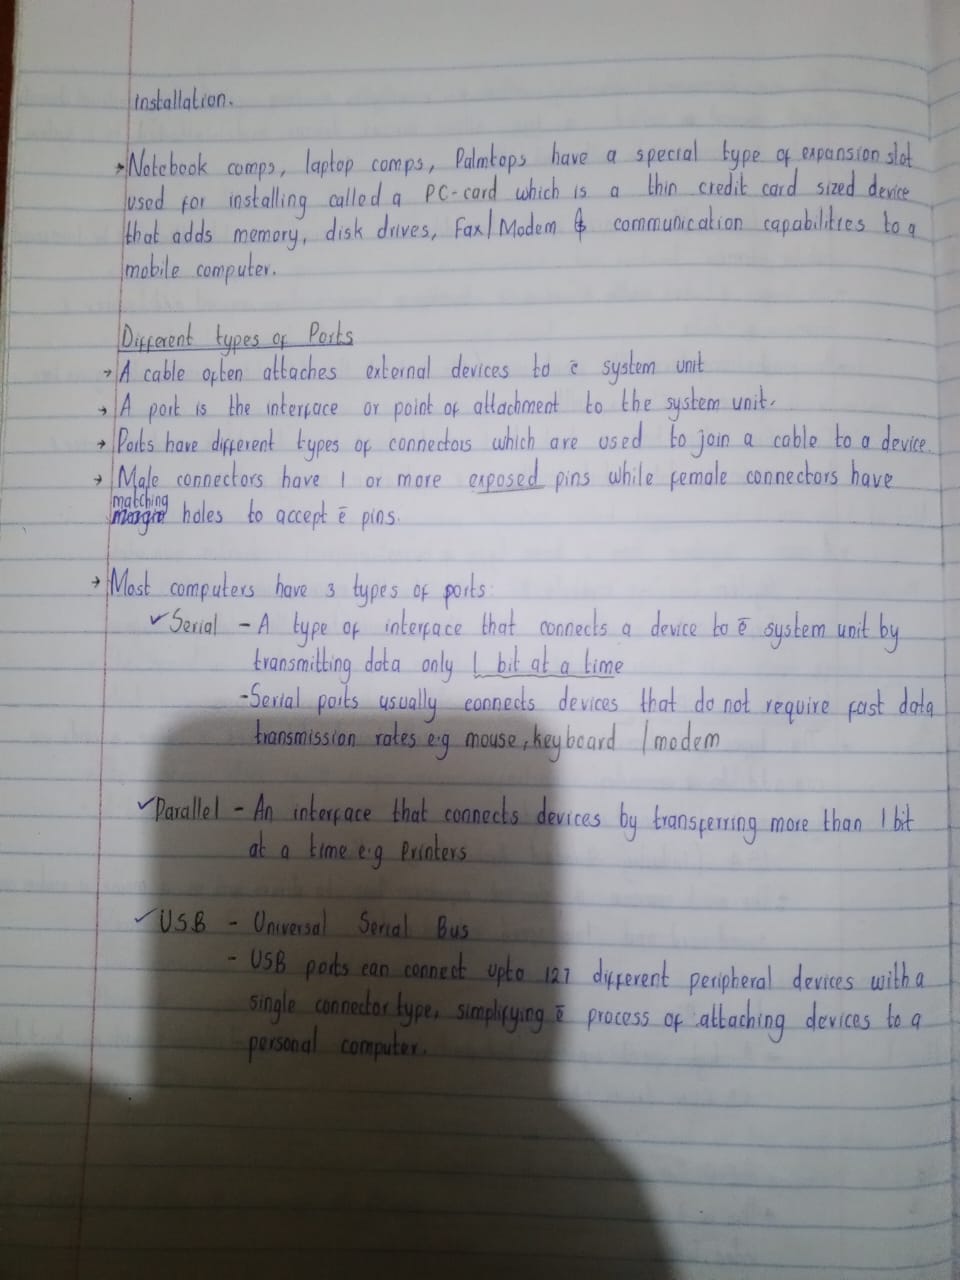 installation.
→ Notebook comps, laptop comps, Palmtops have a special type of expansion slot
used for installing called a PC-card which is a thin credit card sized device
that adds memory, disk drives, Fax/Modem & communication capabilities to a
mobile computer.
Different types of Ports
→ A cable often attaches external devices to ē system unit
→ A port is the interface or point of attachment to the system unit.
→ Ports have different types of connectors which are used to join a cable to a device.
→ Male connectors have 1 or more exposed pins while female connectors have
matching
holes to accept ē pins.
→ Most computers have 3 types of ports:
✓ Serial - A type of interface that connects a device to ē system unit by
transmitting data only 1 bit at a time
- Serial ports usually connects devices that do not require fast data
transmission rates e.g mouse, keyboard /modem
✓ Parallel - An interface that connects devices by transferring more than 1 bit
at a time e.g Printers
✓ USB - Universal Serial Bus
- USB ports can connect upto 127 different peripheral devices with a
single connector type, simplifying ē process of attaching devices to a
personal computer.